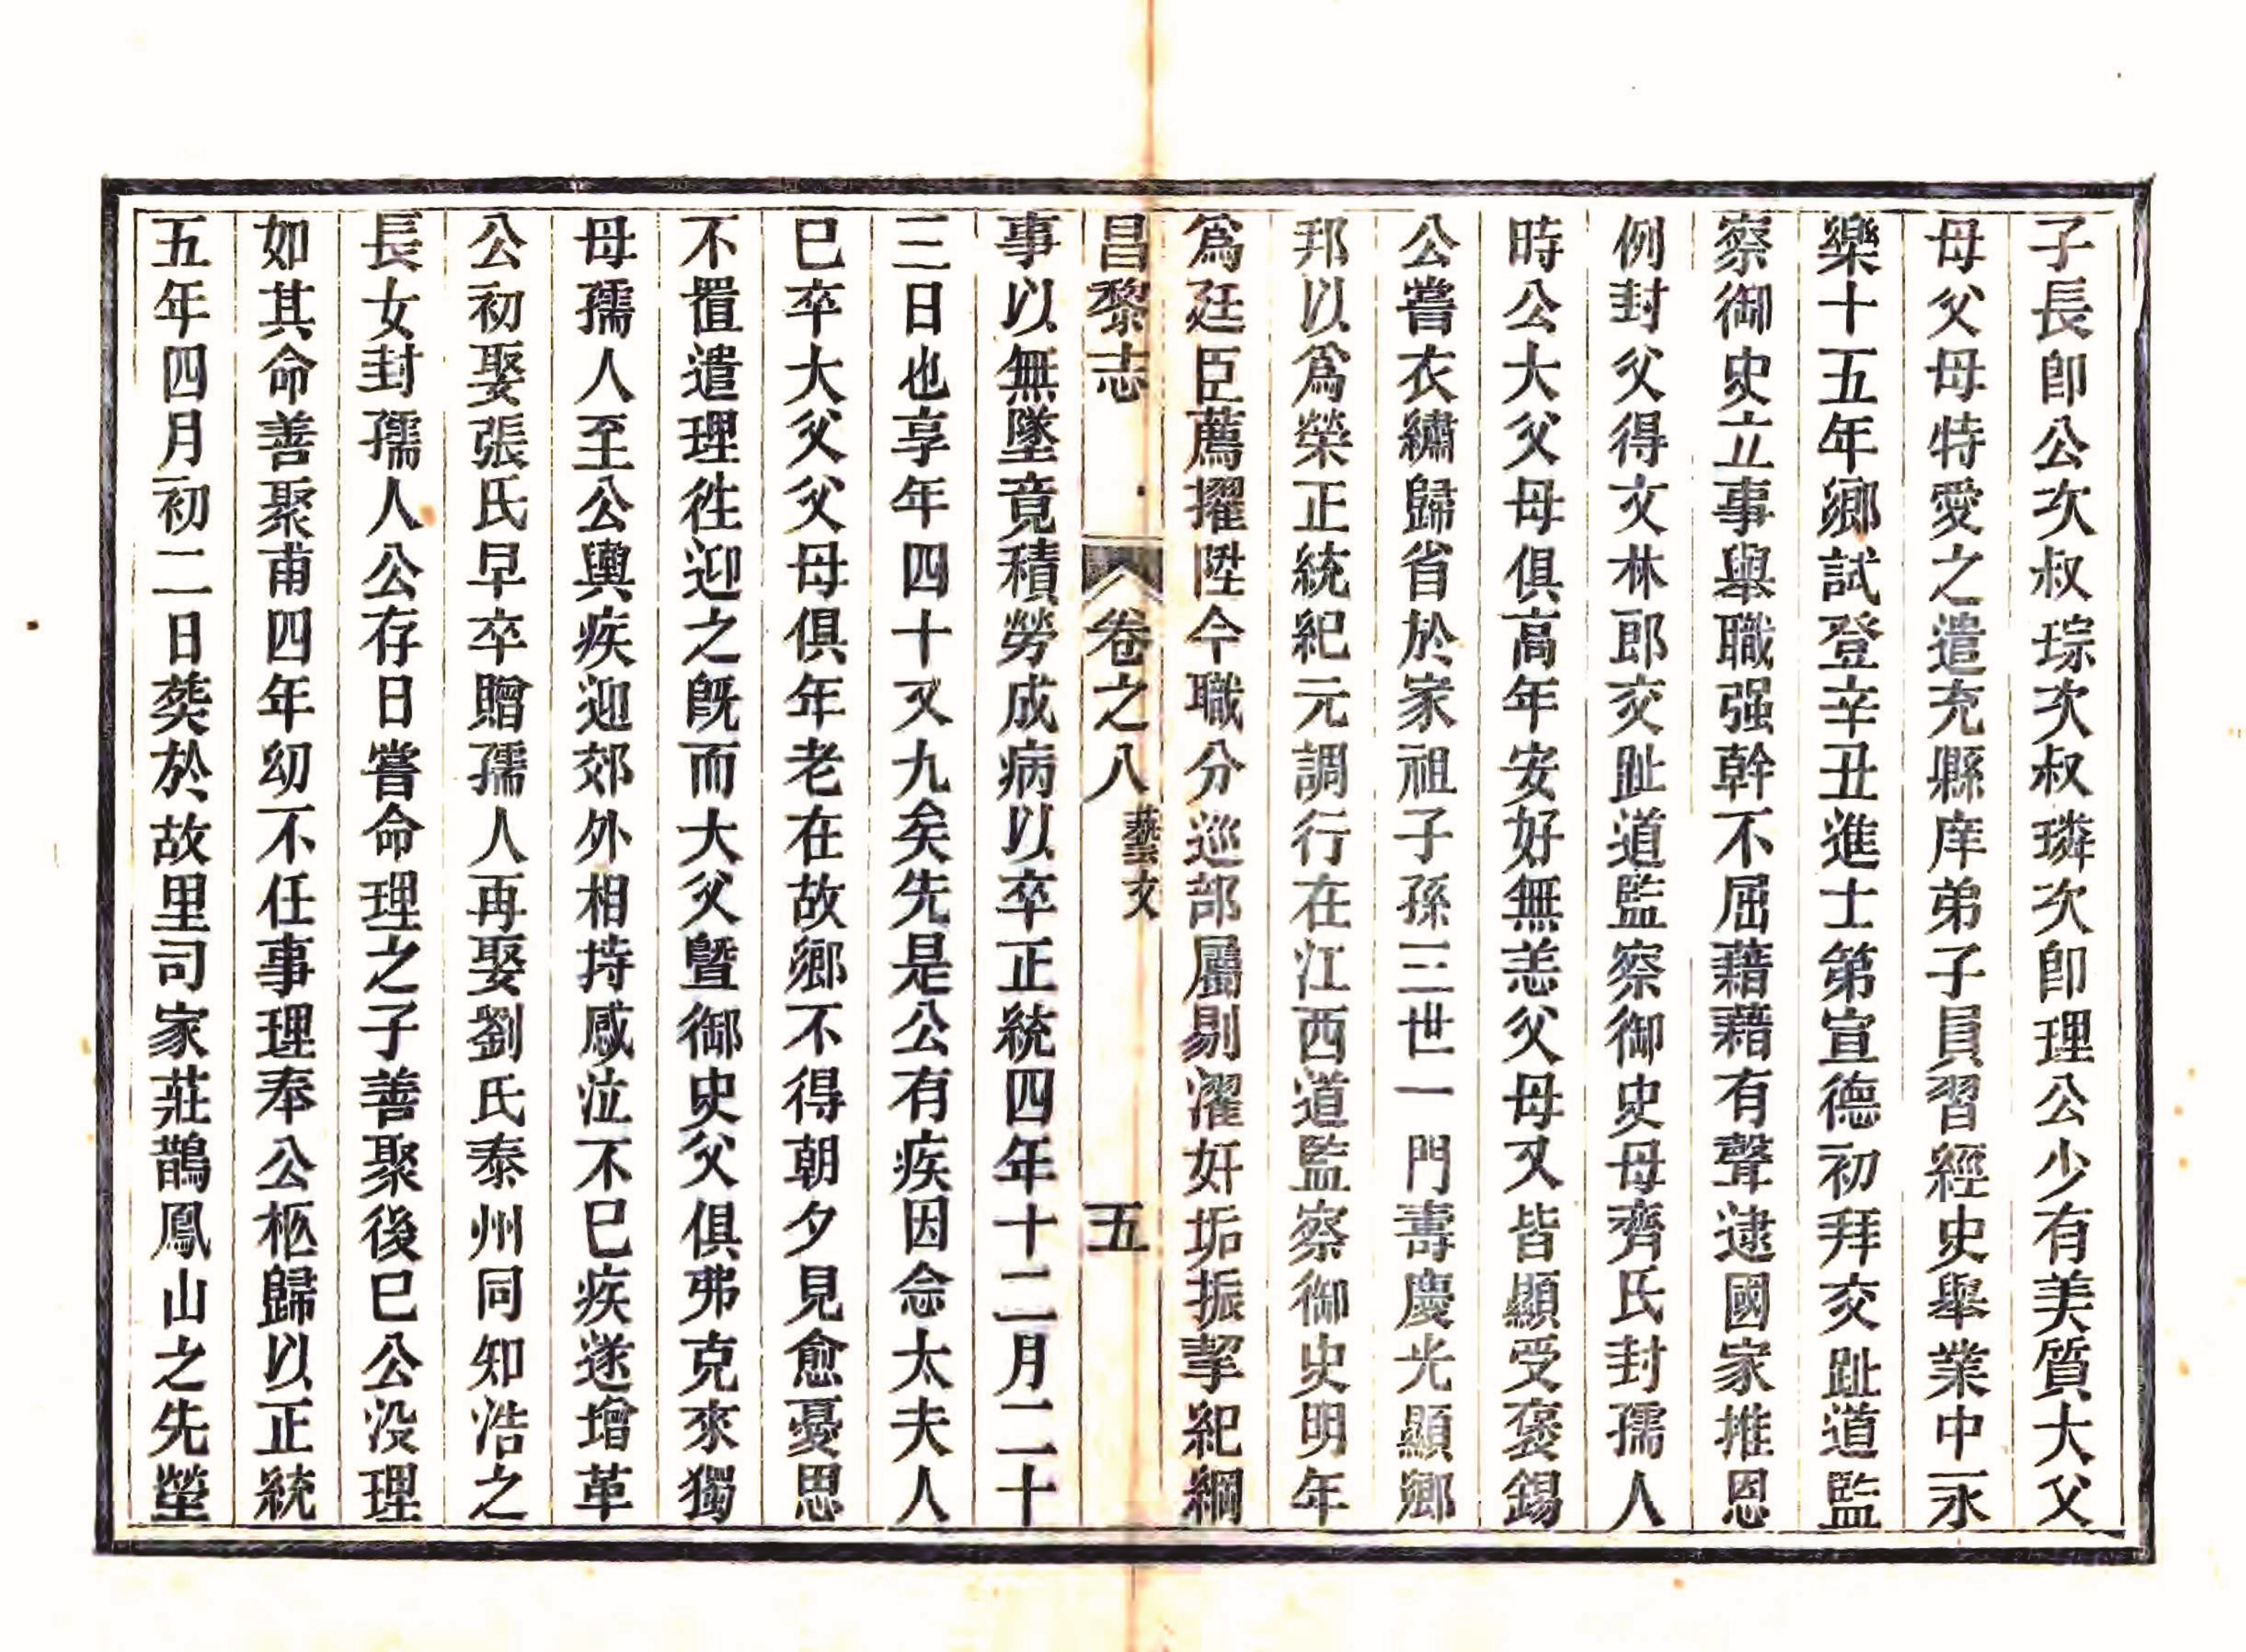 子長卽公次叔琮次叔璘次卽理公少有美質大父
母父母特愛之遣充縣庠弟子員習經史舉業中永
樂十五年鄉試登辛丑進士第宣德初拜交趾道監
察御史立事舉職强幹不屈藉藉有聲逮國家推恩
例封父得文林郎交趾道監察御史母齊氏封孺人
時公大父母俱高年安好無恙父母又皆顯受褒錫
公嘗衣繡歸省於家祖子孫三世一門壽慶光顯鄉
邦以爲榮正統紀元調行在江西道監察御史明年
爲廷臣薦擢陞今職分巡部屬剔濯奸垢振挈紀綱
昌黎志 卷之八 藝文 五
事以無墜竟積勞成病以卒正統四年十二月二十
三日也享年四十又九矣先是公有疾因念太夫人
已卒大父父母俱年老在故鄉不得朝夕見愈憂思
不置遣理徃迎之旣而大父暨御史父俱弗克來獨
母孺人至公輿疾迎郊外相持感泣不已疾遂增革
公初娶張氏早卒贈孺人再娶劉氏泰州同知浩之
長女封孺人公存日嘗命理之子善聚後已公没理
如其命善聚甫四年幼不任事理奉公柩歸以正統
五年四月初二日葬於故里司家莊鵲鳳山之先塋